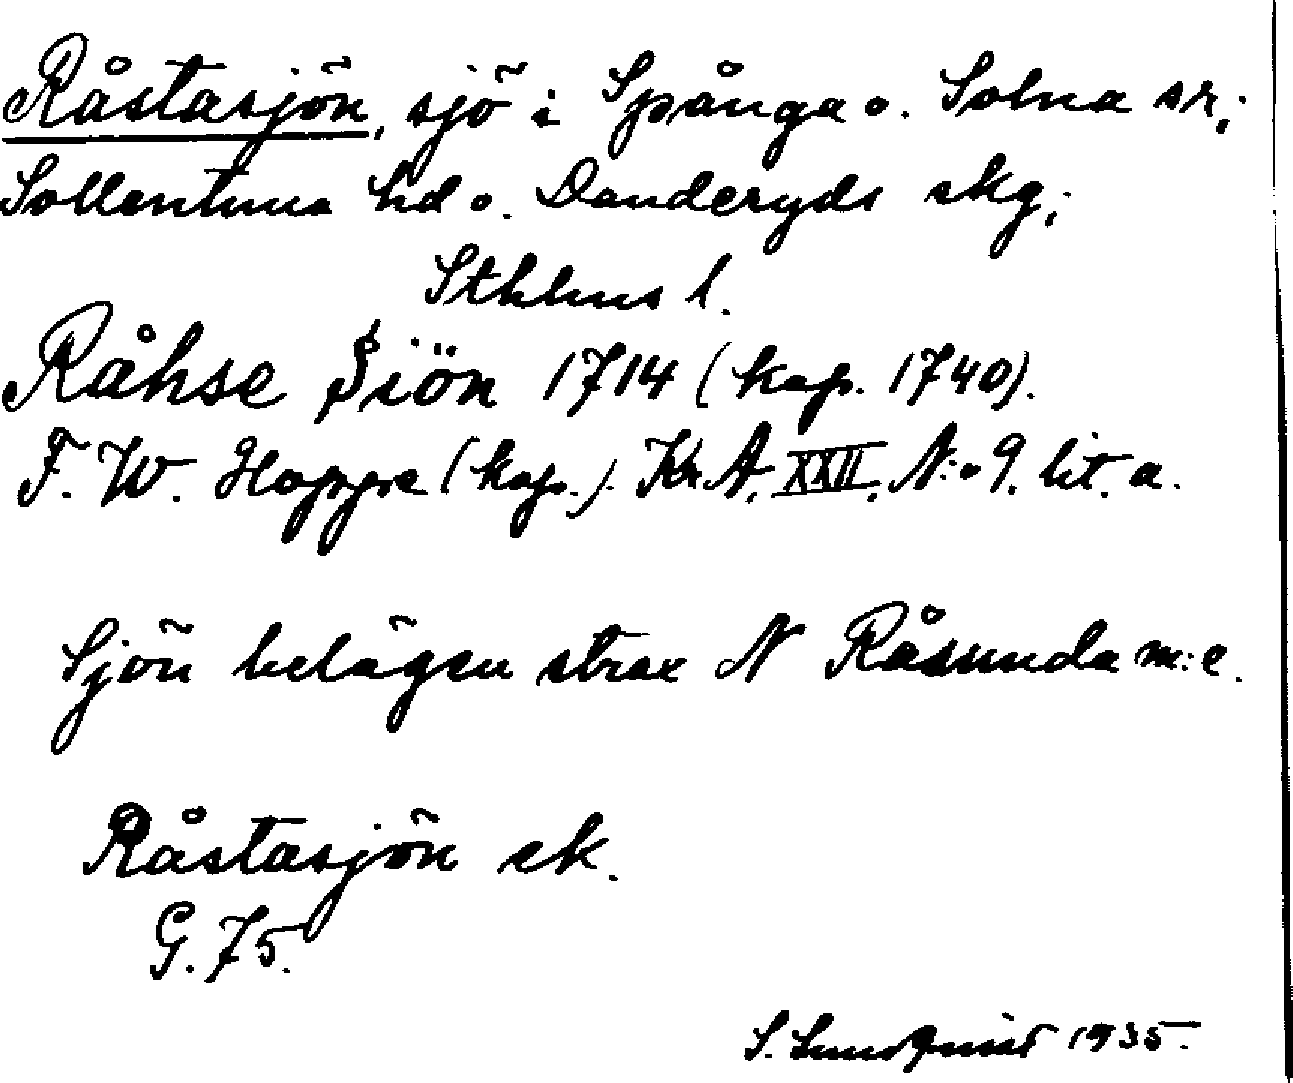 Råstasjön, sjö i Spånga o. Solna sn,
Sollentuna hd o. Danderyds skg,
Sthlms l.
Råhse Siön 1714 (kop. 1740).
F. W. Hoppe (kop.). Kr. A. XXII. N:o 9. lit. a.
Sjön belägen strax N Råsunda m:e.
Råstasjön ek.
G. 75.
S. Lundquist 1935.